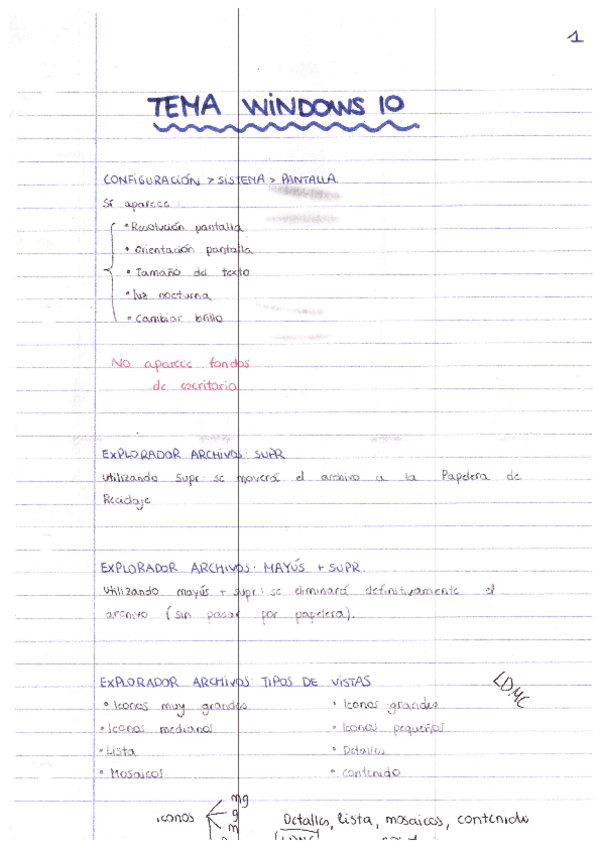 1
TEMA WINDOWS 10
CONFIGURACIÓN > SISTEMA > PANTALLA
Sí aparece:
• Resolución pantalla
• Orientación pantalla
• Tamaño del texto
• luz nocturna
• Cambiar brillo
No aparece fondos
de escritorio
EXPLORADOR ARCHIVOS: SUPR
Utilizando Supr: se moverá el archivo a la Papelera de
Reciclaje
EXPLORADOR ARCHIVOS: MAYÚS + SUPR.
Utilizando mayús + supr: se eliminará definitivamente el
archivo (sin pasar por papelera).
EXPLORADOR ARCHIVOS: TIPOS DE VISTAS
LDMC
• Iconos muy grandes • Iconos grandes
• Iconos medianos • Iconos pequeños
• Lista • Detalles
• Mosaicos • Contenido
mg
iconos g Detalles, lista, mosaicos, contenido
m